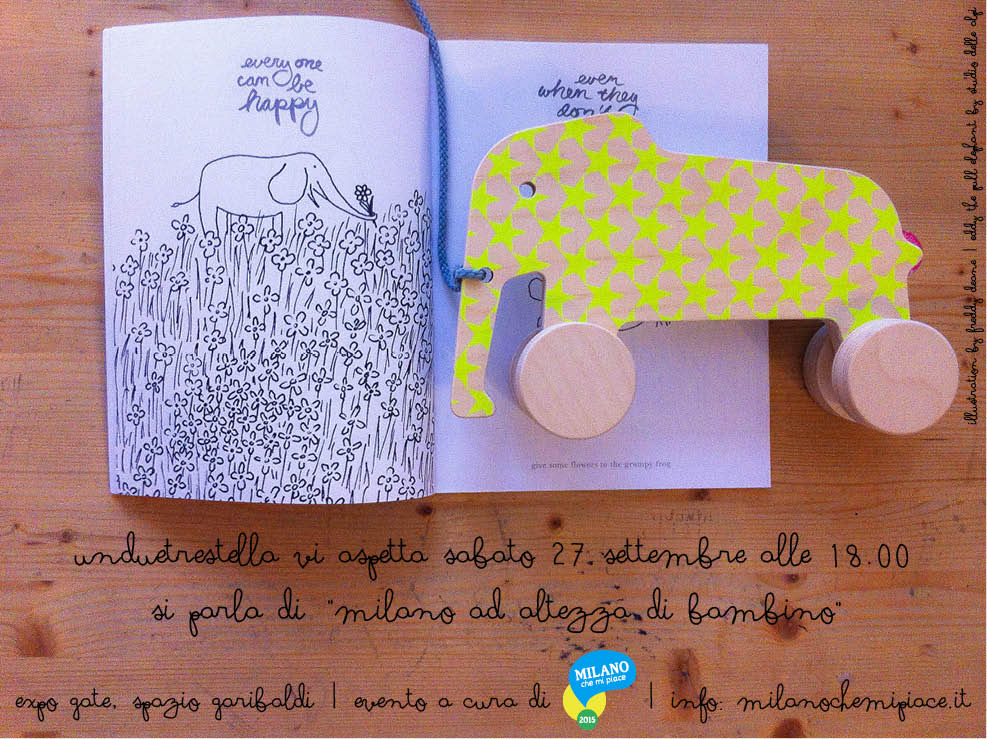 every one
can be
happy
even
when they
don't
give some flowers to the grumpy frog
illustration by freddy deane | eddy the pull elephant by studio delle alpi
unduetrestella vi aspetta sabato 27 settembre alle 18.00
si parla di "milano ad altezza di bambino"
expo gate, spazio garibaldi | evento a cura di MILANO che mi piace 2015 | info: milanochemipiace.it